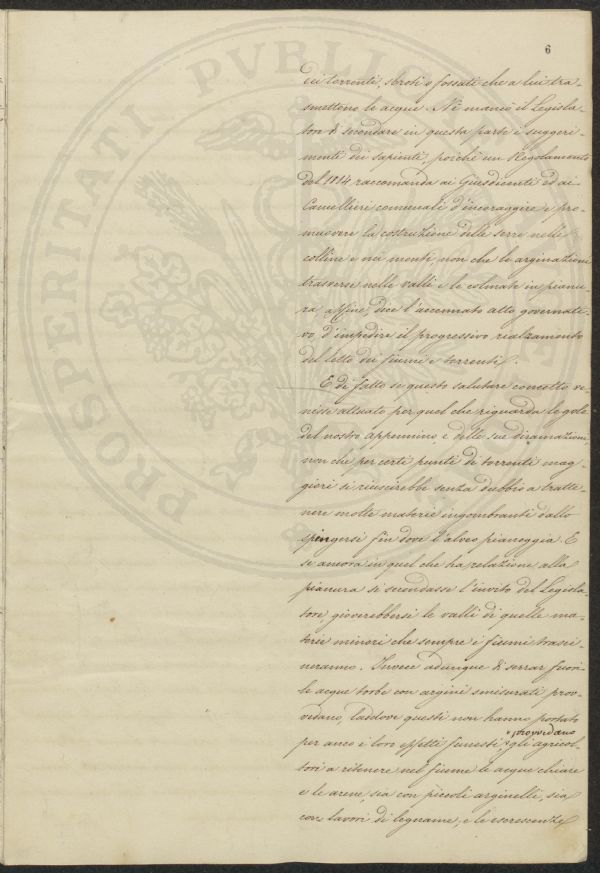 6
dei torrenti, sbroti o fossati che a lui tra-
smettono le acque. Nè mancò il Legisla-
tore di secondare in questa parte i suggeri-
menti dei sapienti, poichè un Regolamento
del 1814 raccomanda ai Giusdicenti ed ai
Cancellieri comunali d'incoraggire e pro-
muovere la costruzione delle serre nelle
colline e nei monti non che le arginazioni
trasverse nelle valli e le colmate in pianu-
ra, affine, dice l'accennato atto governati-
vo, d'impedire il progressivo rialzamento
del letto dei fiumi e torrenti.
E di fatto se questo salutare concetto ve-
nisse attuato per quel che riguarda le gole
del nostro appennino e delle sue diramazioni
non che per certi punti di torrenti mag-
giori si riuscirebbe senza dubbio a tratte-
nere molte materie ingombranti dallo
spingersi fin dove l'alveo pianeggia. E
se ancora in quel che ha relazione alla
pianura si secondasse l'invito del Legisla-
tore gioverebbersi le valli di quelle ma-
terie minori che sempre i fiumi trasci-
neranno. Invece adunque di serrar fuori
le acque torbe con argini smisurati prov-
vedano, laddove questi non hanno portato
provvedano
per anco i loro effetti funesti, gli agricol-
tori a ritenere nel fiume le acque chiare
e le arene, sia con piccoli arginelli, sia
con lavori di legname, e le escrescenze
PROSPERITATI PVBLICAE